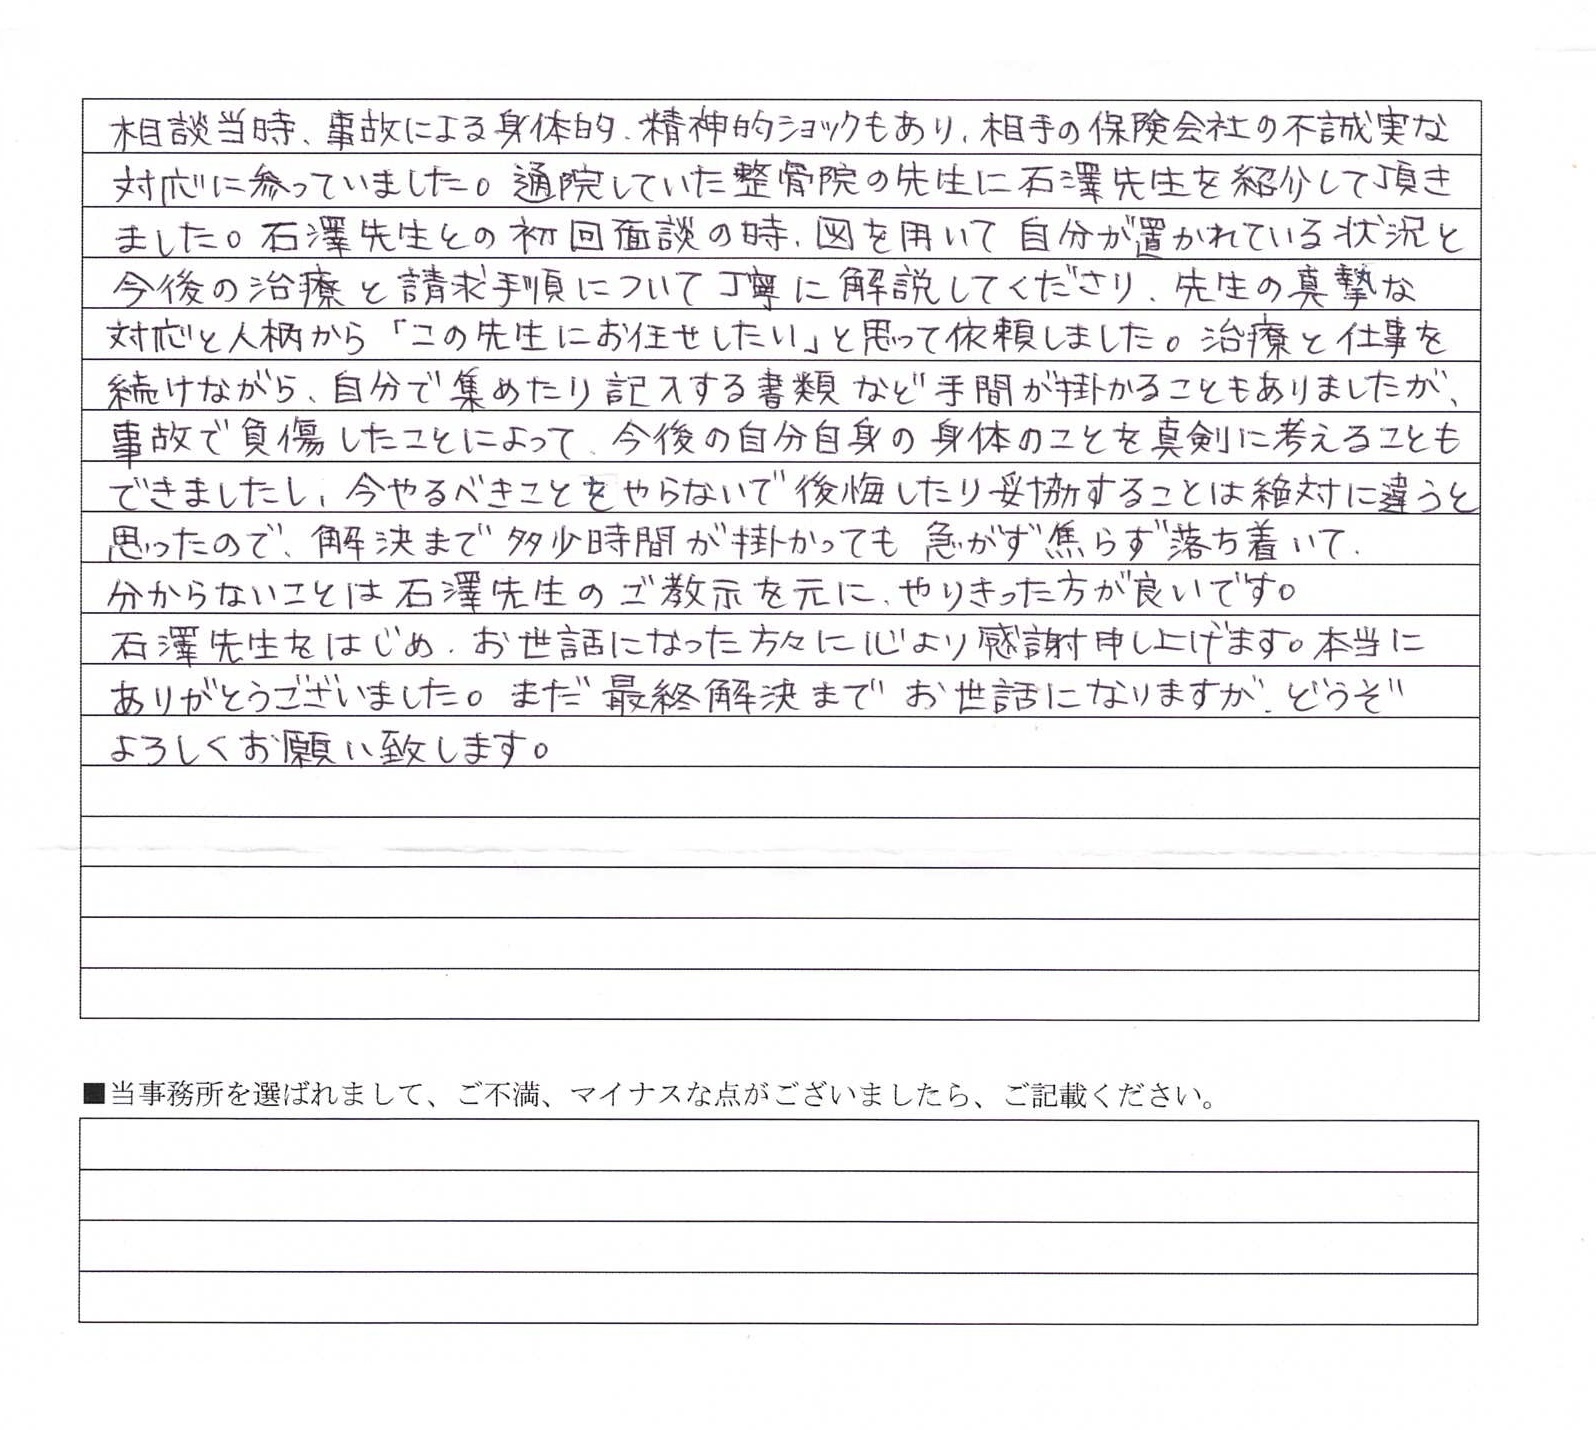 相談当時、事故による身体的、精神的ショックもあり、相手の保険会社の不誠実な
対応に参っていました。通院していた整骨院の先生に石澤先生を紹介して頂き
ました。石澤先生との初回面談の時、図を用いて自分が置かれている状況と
今後の治療と請求手順について丁寧に解説してくださり、先生の真摯な
対応と人柄から「この先生にお任せしたい」と思って依頼しました。治療と仕事を
続けながら、自分で集めたり記入する書類など手間が掛かることもありましたが、
事故で負傷したことによって、今後の自分自身の身体のことを真剣に考えることも
できましたし、今やるべきことをやらないで後悔したり妥協することは絶対に違うと
思ったので、解決まで多少時間が掛かっても急がず焦らず落ち着いて、
分からないことは石澤先生のご教示を元に、やりきった方が良いです。
石澤先生をはじめ、お世話になった方々に心より感謝申し上げます。本当に
ありがとうございました。まだ最終解決までお世話になりますが、どうぞ
よろしくお願い致します。
■当事務所を選ばれまして、ご不満、マイナスな点がございましたら、ご記載ください。